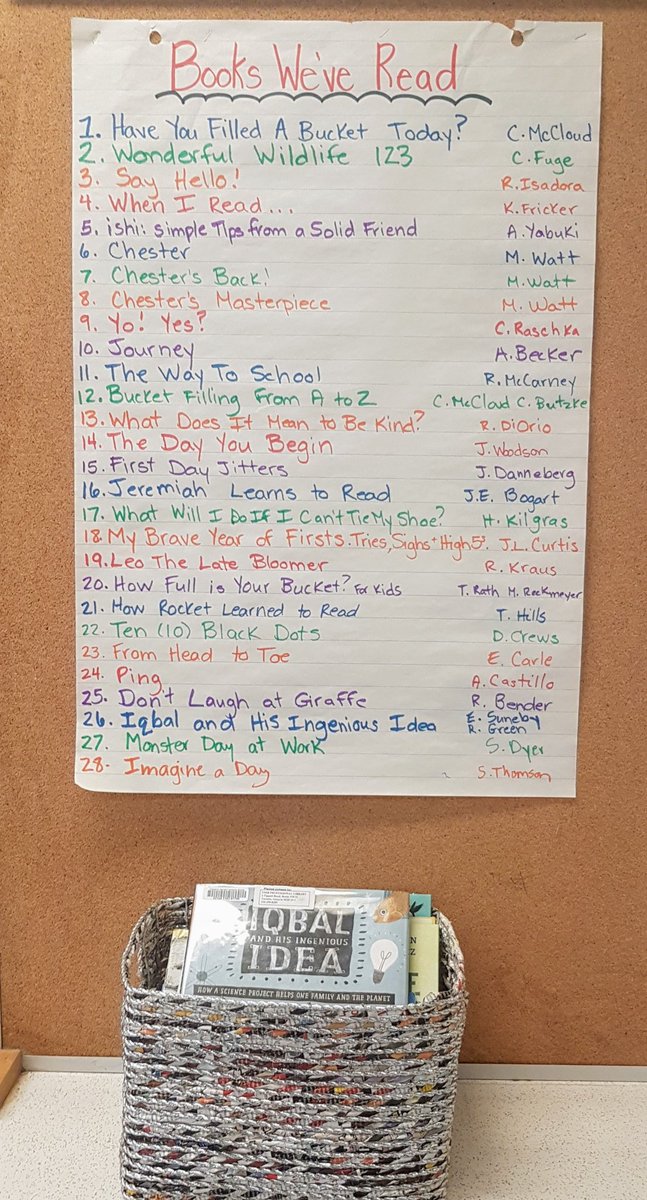 Books We've Read
1. Have You Filled A Bucket Today? C. McCloud
2. Wonderful Wildlife 123 C. Fuge
3. Say Hello! R. Isadora
4. When I Read... K. Fricker
5. ishi: simple Tips from a Solid Friend A. Yabuki
6. Chester M. Watt
7. Chester's Back! M. Watt
8. Chester's Masterpiece M. Watt
9. Yo! Yes? C. Raschka
10. Journey A. Becker
11. The Way To School R. McCarney
12. Bucket Filling From A to Z C. McCloud C. Butzke
13. What Does It Mean to Be Kind? R. DiOrio
14. The Day You Begin J. Woodson
15. First Day Jitters J. Danneberg
16. Jeremiah Learns to Read J.E. Bogart
17. What Will I Do If I Can't Tie My Shoe? H. Kilgras
18 My Brave Year of Firsts. Tries, Sighs + High 5s. J.L. Curtis
19. Leo The Late Bloomer R. Kraus
20. How Full is Your Bucket? For Kids T. Rath M. Reckmeyer
21. How Rocket Learned to Read T. Hills
22. Ten (10) Black Dots D. Crews
23. From Head to Toe E. Carle
24. Ping A. Castillo
25. Don't Laugh at Giraffe R. Bender
26. Iqbal and His Ingenious Idea E. Suneby R. Green
27. Monster Day at Work S. Dyer
28. Imagine a Day S. Thomson
IQBAL
AND HIS INGENIOUS
IDEA
HOW A SCIENCE PROJECT HELPS ONE FAMILY AND THE PLANET